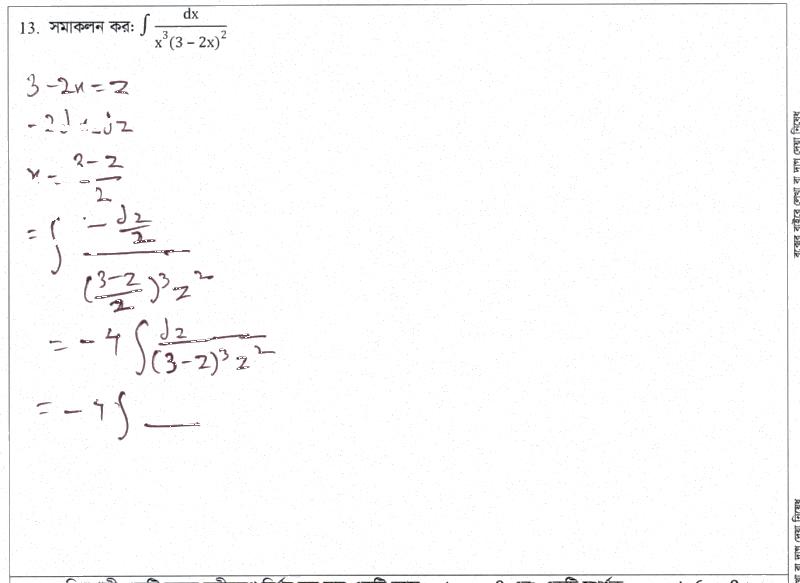 13. সমাকলন কর: ∫ dx / x³(3 – 2x)²
3 - 2x = z
- 2dx = dz
x = 3 - z / 2
= ∫ - dz/2 / (3-z / 2)³ z²
= - 4 ∫ dz / (3-z)³ z²
= - 4 ∫ —
বক্সের বাইরে লেখা বা দাগ দেয়া নিষেধ
বা দাগ দেয়া নিষেধ